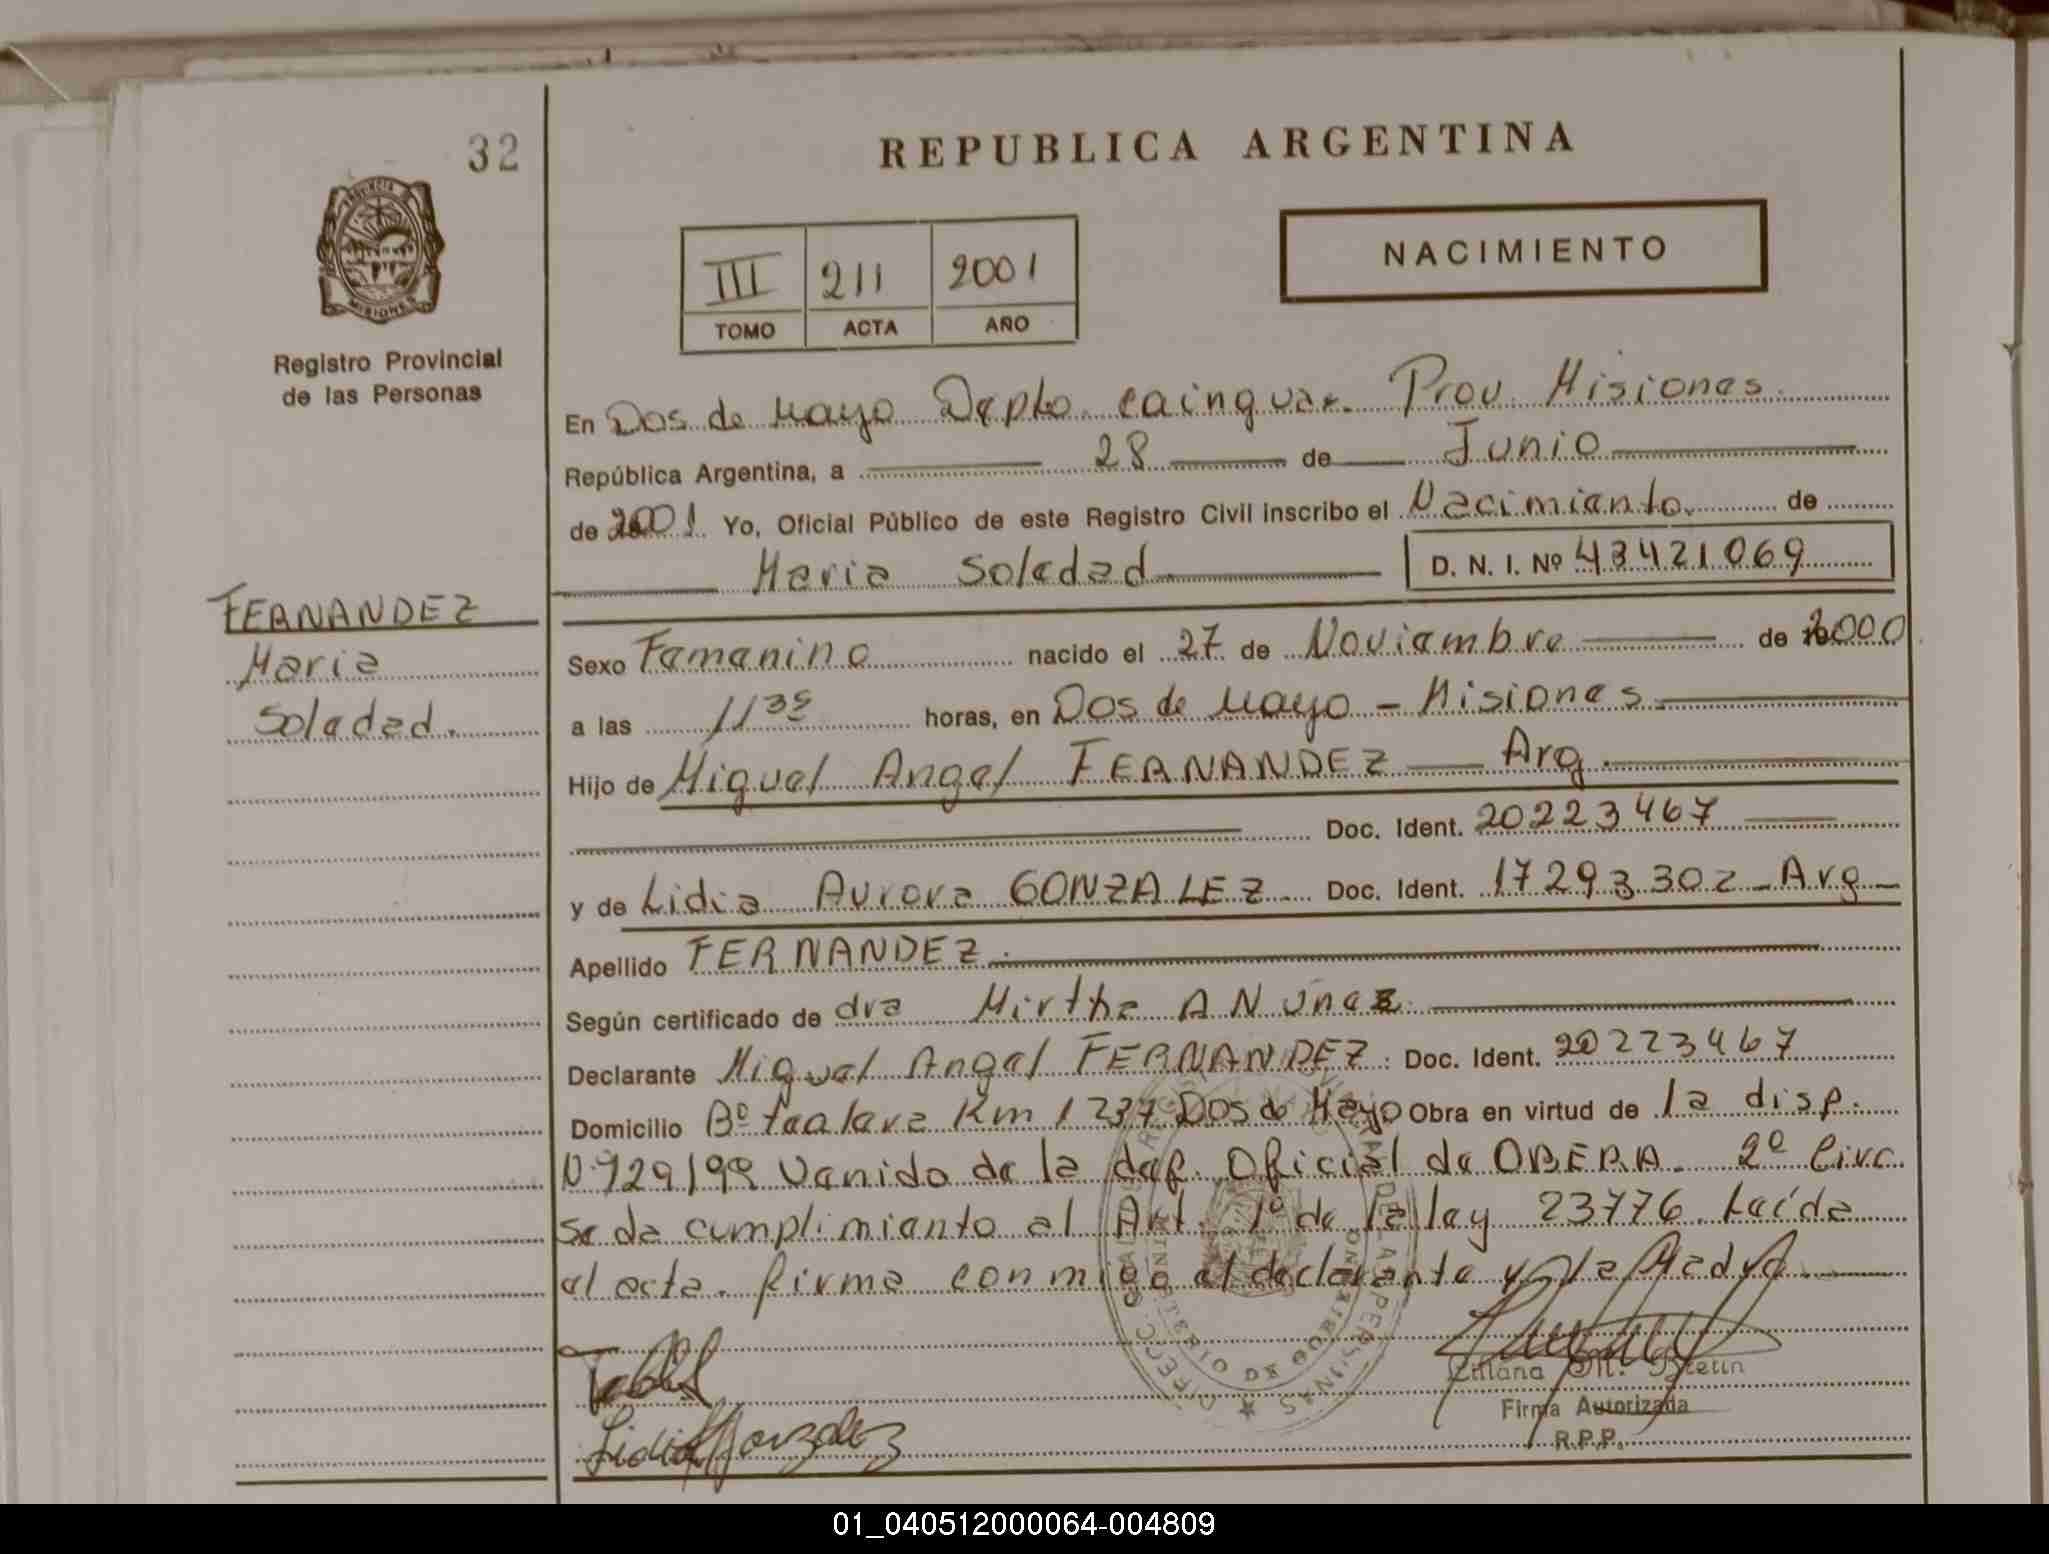 32
REPUBLICA ARGENTINA
NACIMIENTO
III 211 2001
TOMO ACTA AÑO
PROVINCIA
MISIONES
Registro Provincial
de las Personas
En Dos de Mayo Depto. Cainguas. Prov. Misiones.
República Argentina, a 28 de Junio
de 2001. Yo, Oficial Público de este Registro Civil inscribo el Nacimiento. de
Maria Soledad D. N. I. Nº 43421069
FERNANDEZ
Maria
Soledad.
Sexo Femenino nacido el 27 de Noviembre de 2000
a las 11 35 horas, en Dos de Mayo - Misiones
Hijo de Miguel Angel FERNANDEZ — Arg.
Doc. Ident. 20223467
y de Lidia Aurora GONZALEZ Doc. Ident. 17293302 - Arg -
Apellido FERNANDEZ.
Según certificado de dra Mirtha A Nunez
Declarante Miguel Angel FERNANDEZ. Doc. Ident. 20223467
Domicilio Bº Km 1237 Dos de Mayo Obra en virtud de la disp.
Nº 929/99 venido de la def. Oficial de OBERA. 2º Circ.
se da cumplimiento al Art. 1º de la ley 23776. Leída
el acta. firma conmigo el declarante y la Madre.
Lidia A Gonzalez
Firma Autorizada
R.P.P.
01_040512000064-004809